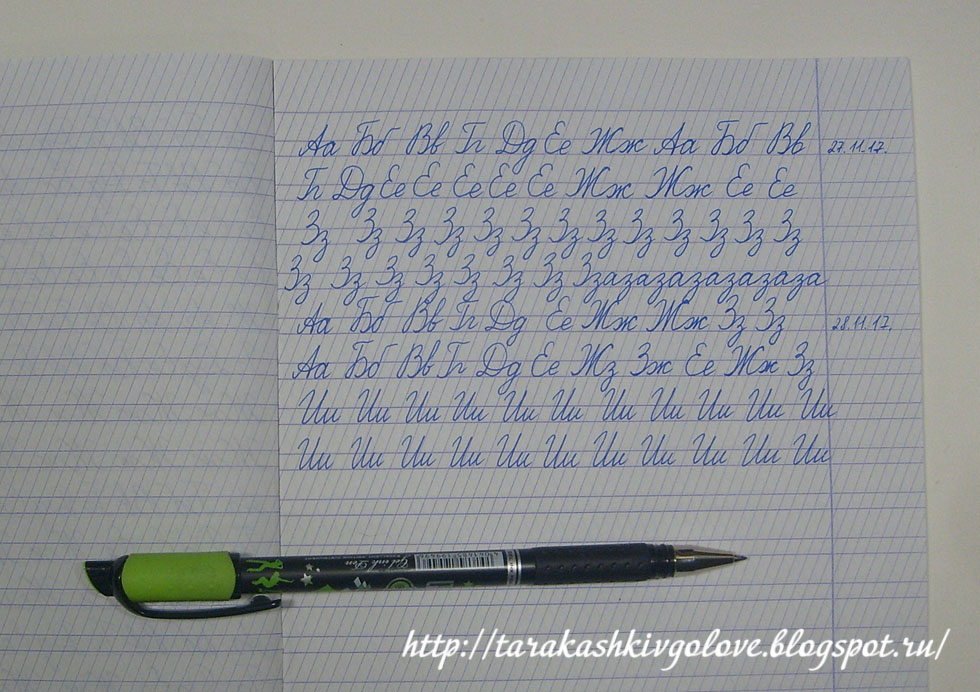 Аа Бб Вв Гг Дд Ее Жж Аа Бб Вв 27.11.17.
Гг Дд Ее Ее Ее Ее Ее Жж Жж Ее Ее
Зз Зз Зз Зз Зз Зз Зз Зз Зз Зз Зз Зз Зз
Зз Зз Зз Зз Зз Зз Зз Ззазазазазазаза
Аа Бб Вв Гг Дд Ее Жж Жж Зз Зз 28.11.17.
Аа Бб Вв Гг Дд Ее Жз Зж Ее Жж Зз
Ии Ии Ии Ии Ии Ии Ии Ии Ии Ии Ии
Ии Ии Ии Ии Ии Ии Ии Ии Ии Ии Ии
Gel ink Pen
http://tarakashkivgolove.blogspot.ru/